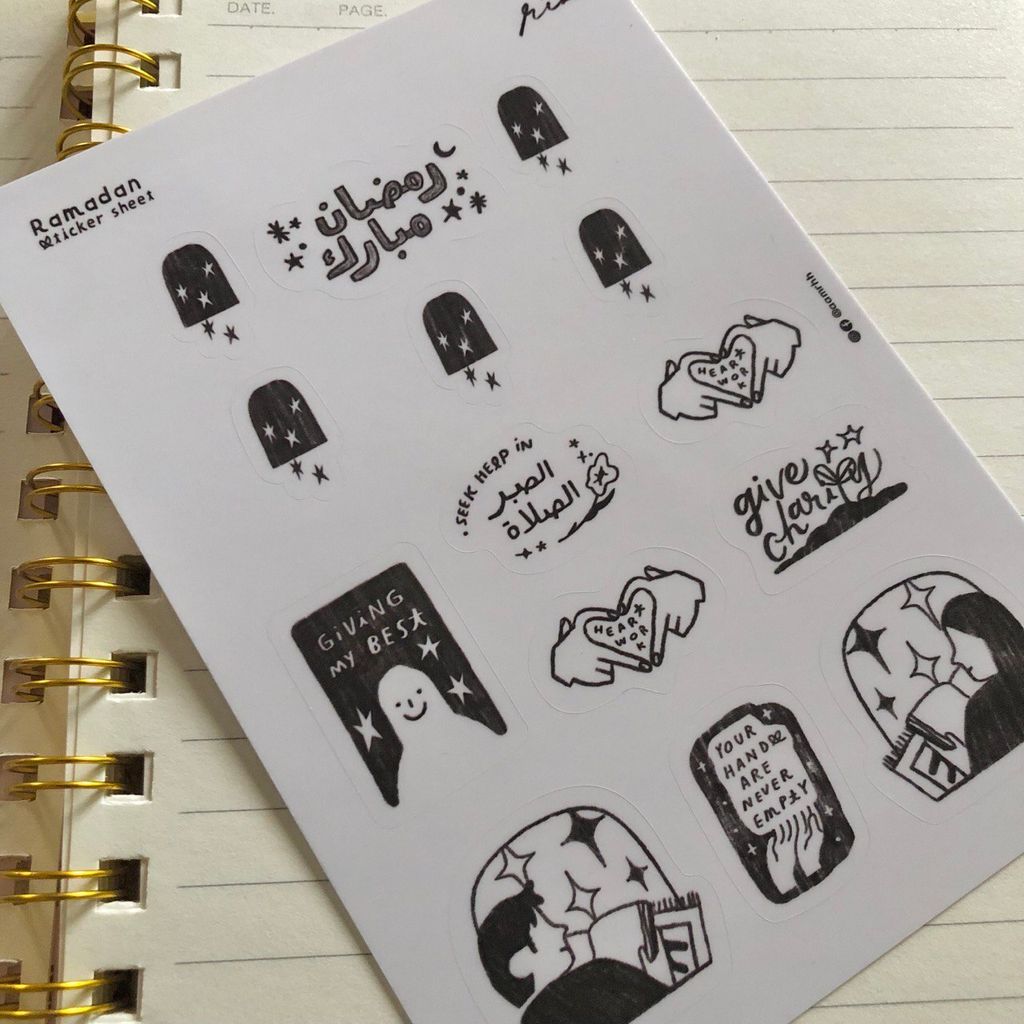 DATE.
PAGE.
Ramadan
sticker sheet
رمضان
مبارك
@aamrhh
HEART
WORK
SEEK HELP IN
الصبر
الصلاة
give
charity
GiViNG
MY BEST
HEART
WORK
YOUR
HANDS
ARE
NEVER
EMPTY